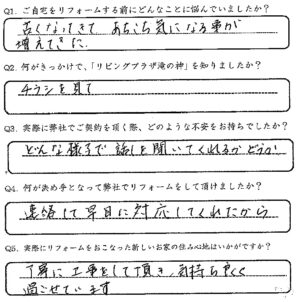 Q1. ご自宅をリフォームする前にどんなことに悩んでいましたか?
古くなってきて あちこち気になる事が
増えてきた
Q2. 何がきっかけで、「リビングプラザ滝の神」を知りましたか?
チラシを見て
Q3. 実際に弊社でご契約を頂く際、どのような不安をお持ちでしたか?
どんな様子で 話しを聞いてくれるかどうか
Q4. 何が決め手となって弊社でリフォームをして頂けましたか?
連絡して早目に対応してくれたから
Q5. 実際にリフォームをおこなった新しいお家の住み心地はいかがですか?
丁寧に工事をして頂き、気持ち良く
過ごせています